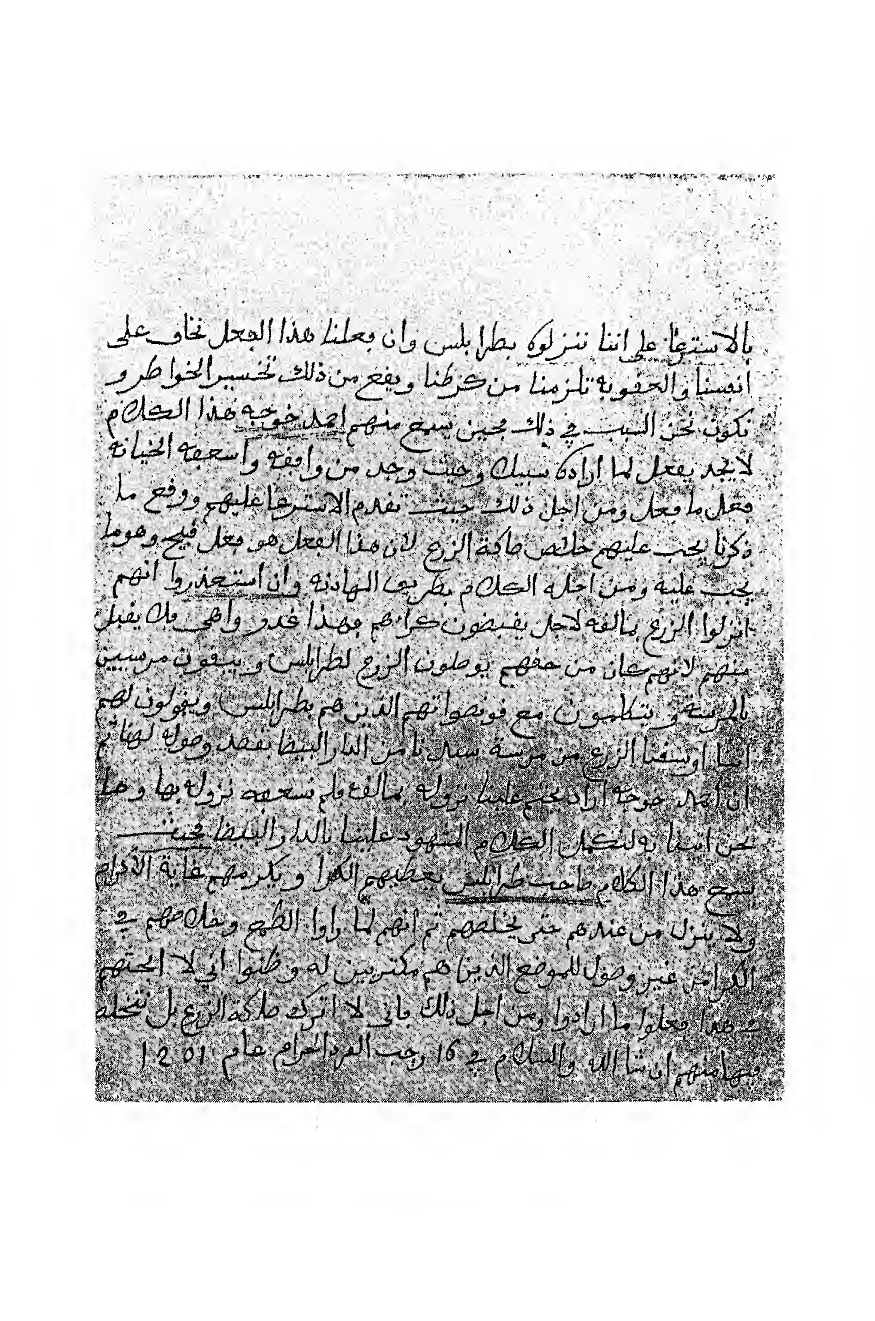 بالاسترعا على اننا ننزلوه بطرابلس وان فعلنا هذا الفعل نخاف على
انفسنا والعقوبة تلزمنا من كرطنا ويقع من ذلك تخسير الخواطر و
نكون نحن السبب في ذلك فحين يسمع منهم احمد خوجه هذا الكلام
لا يجد يفعل لما اراده سبيلا وحيث وجد من وافقه واسعفه الخيانة
فعل ما فعل ومن اجل ذلك حيث تقدم الاسترعا عليهم ووقع ما
ذكرنا يجب عليهم خلاص صاكة الزرع لان هذا الفعل هو فعل قبيح وهو ما
يجب عليه ومن اجله الكلام بطريق المهادنة وان استعذروا انهم
انزلوا الزرع بمالطة لاجل يقبضون كراهم فهذا عذر واهي فلا يقبل
منهم لانهم كان من حقهم يوصلون الزرع لطرابلس ويبقون مرسيين
بالمرسى و يتكلمون مع قونصواتهم الذين هم بطرابلس ويقولون لهم
اننا اوسقنا الزرع من مرسة سيدنا من الدار البيضا بقصد وصوله لهنا ثم
ان احمد خوجه اراد يحتم علينا نزوله بمالطة فلم نسعفه نزوله بها وها
نحن اتينا به لنكمل الكلام المشهود علينا بالدار البيضا فحيث
يسمع هذا الكلام صاحب طرابلس يعطيهم الكرا ويكرمهم غاية الاكرام
ولا ينزل من عندهم حتى يخلصهم ثم انهم لما راوا الطمع وخلاصهم في
الكرا من غير وصول للموضع الذين هم مكتريين له وظنوا اني لا الحقهم
في هذا فعلوا ما ارادوا ومن اجل ذلك فاني لا اترك صاكة الزرع بل نتخلص
فيها منهم ان شا الله والسلام في 16 رجب الفرد الحرام عام 1201